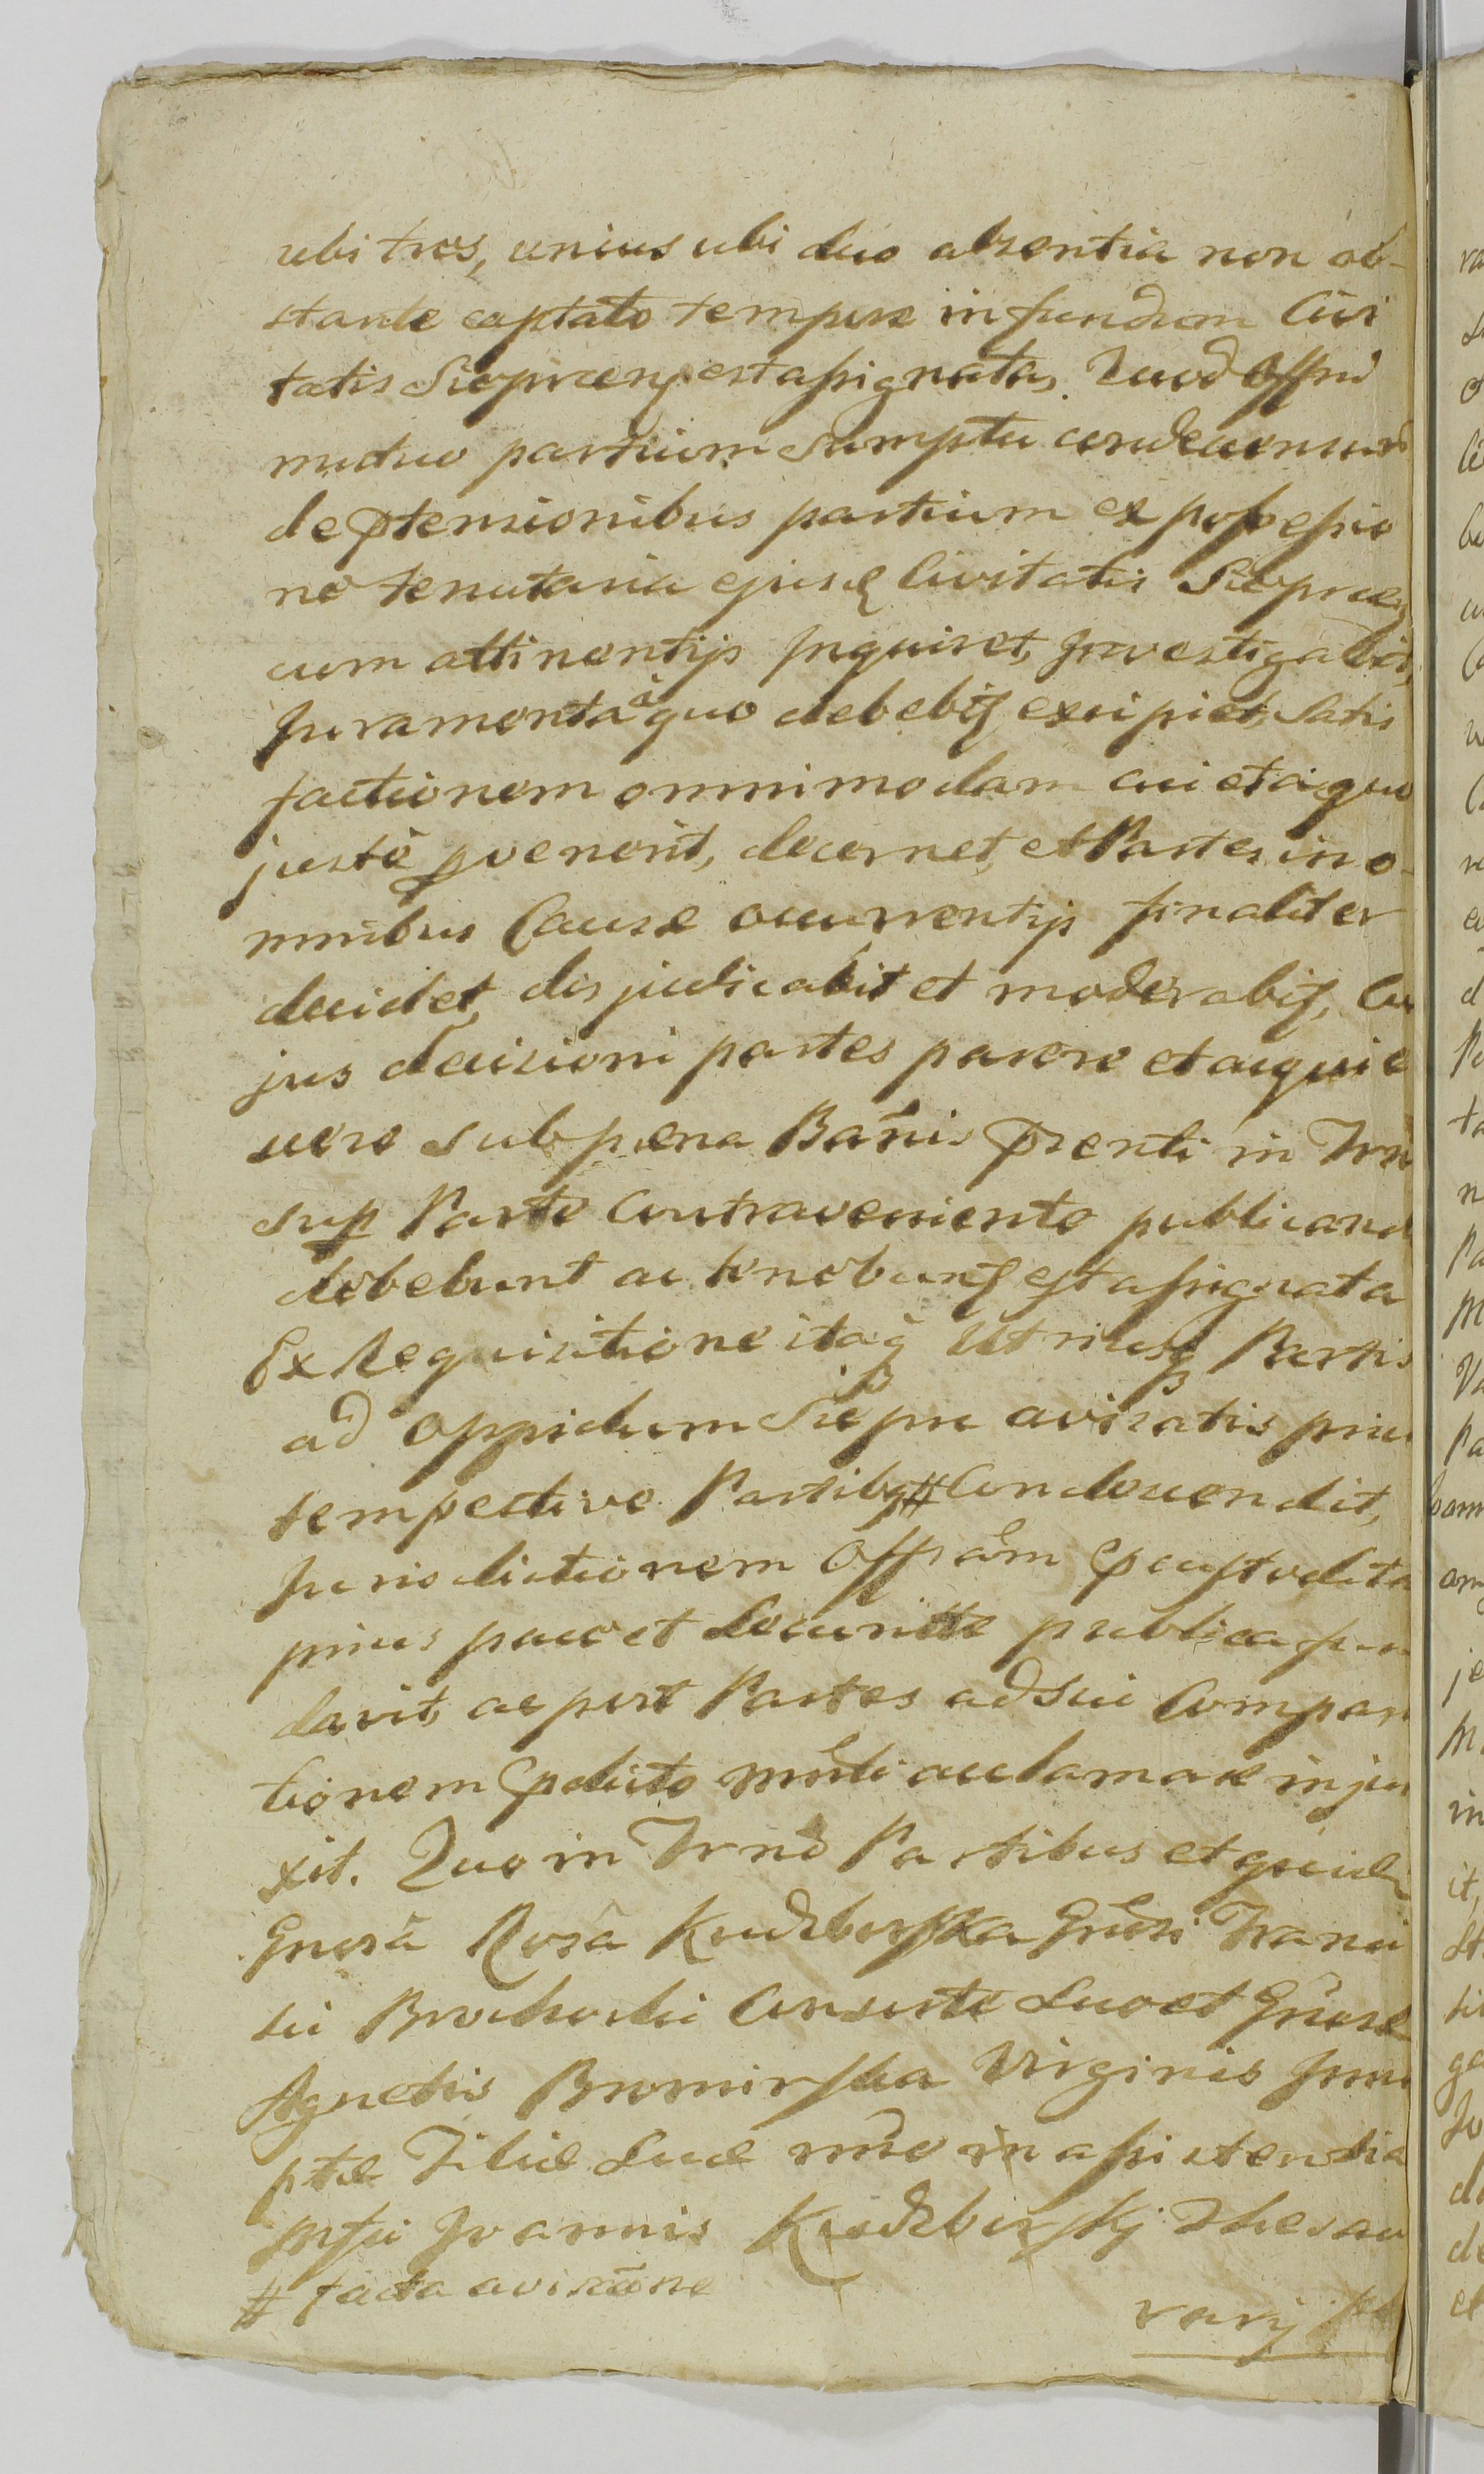 ubi tres, unius ubi duo absentia non ob-
stante captato tempore in fundum Civi
tatis Sieprcensem est assignatas. Quod Offid
mutuo partium sumptu condescensur
de prtensionibus partium ex possessio
ne tenutaria ejusd Civitatis Sieprcen
cum attinentijs Inquiret, Investigabit,
Juramenta à quo debebit excipiet, Satis
factionem omnimodam cui et à quo
justè pvenerit, decernet, et Partes in o-
mnibus Causæ occurrentijs finaliter
decidet, disjudicabit et moderabit, Cu
jus decisioni partes parere et acquie
scere sub pæna Bañis prenti in Trno
sup Parte Contraveniente publicand
debebunt ac tenebunt est assignata
Ex Requisitione itaq Utriusq Partis
ad Oppidum Siepre avisatis prius
tempestive Partibq # Condescendit,
Jurisdictionem Offialem pcustodita
prius pace et Securitte publica fun
davit, ac post Partes ad sui Compari
tionem pdicto mñdi acclamare injun
xit. Quo in Trnò Partibus et quide
Gnosâ Rosâ Kuczborska Gñosi Franci
sci Brochocki Consorte Suo et Gñosæ
Agnetis Bromirska Virginis Innu
ptæ Filiæ Suæ nñe in assistentia
Mfci Joannis Kuczborskij Thesau
# facta avisãone
rarij